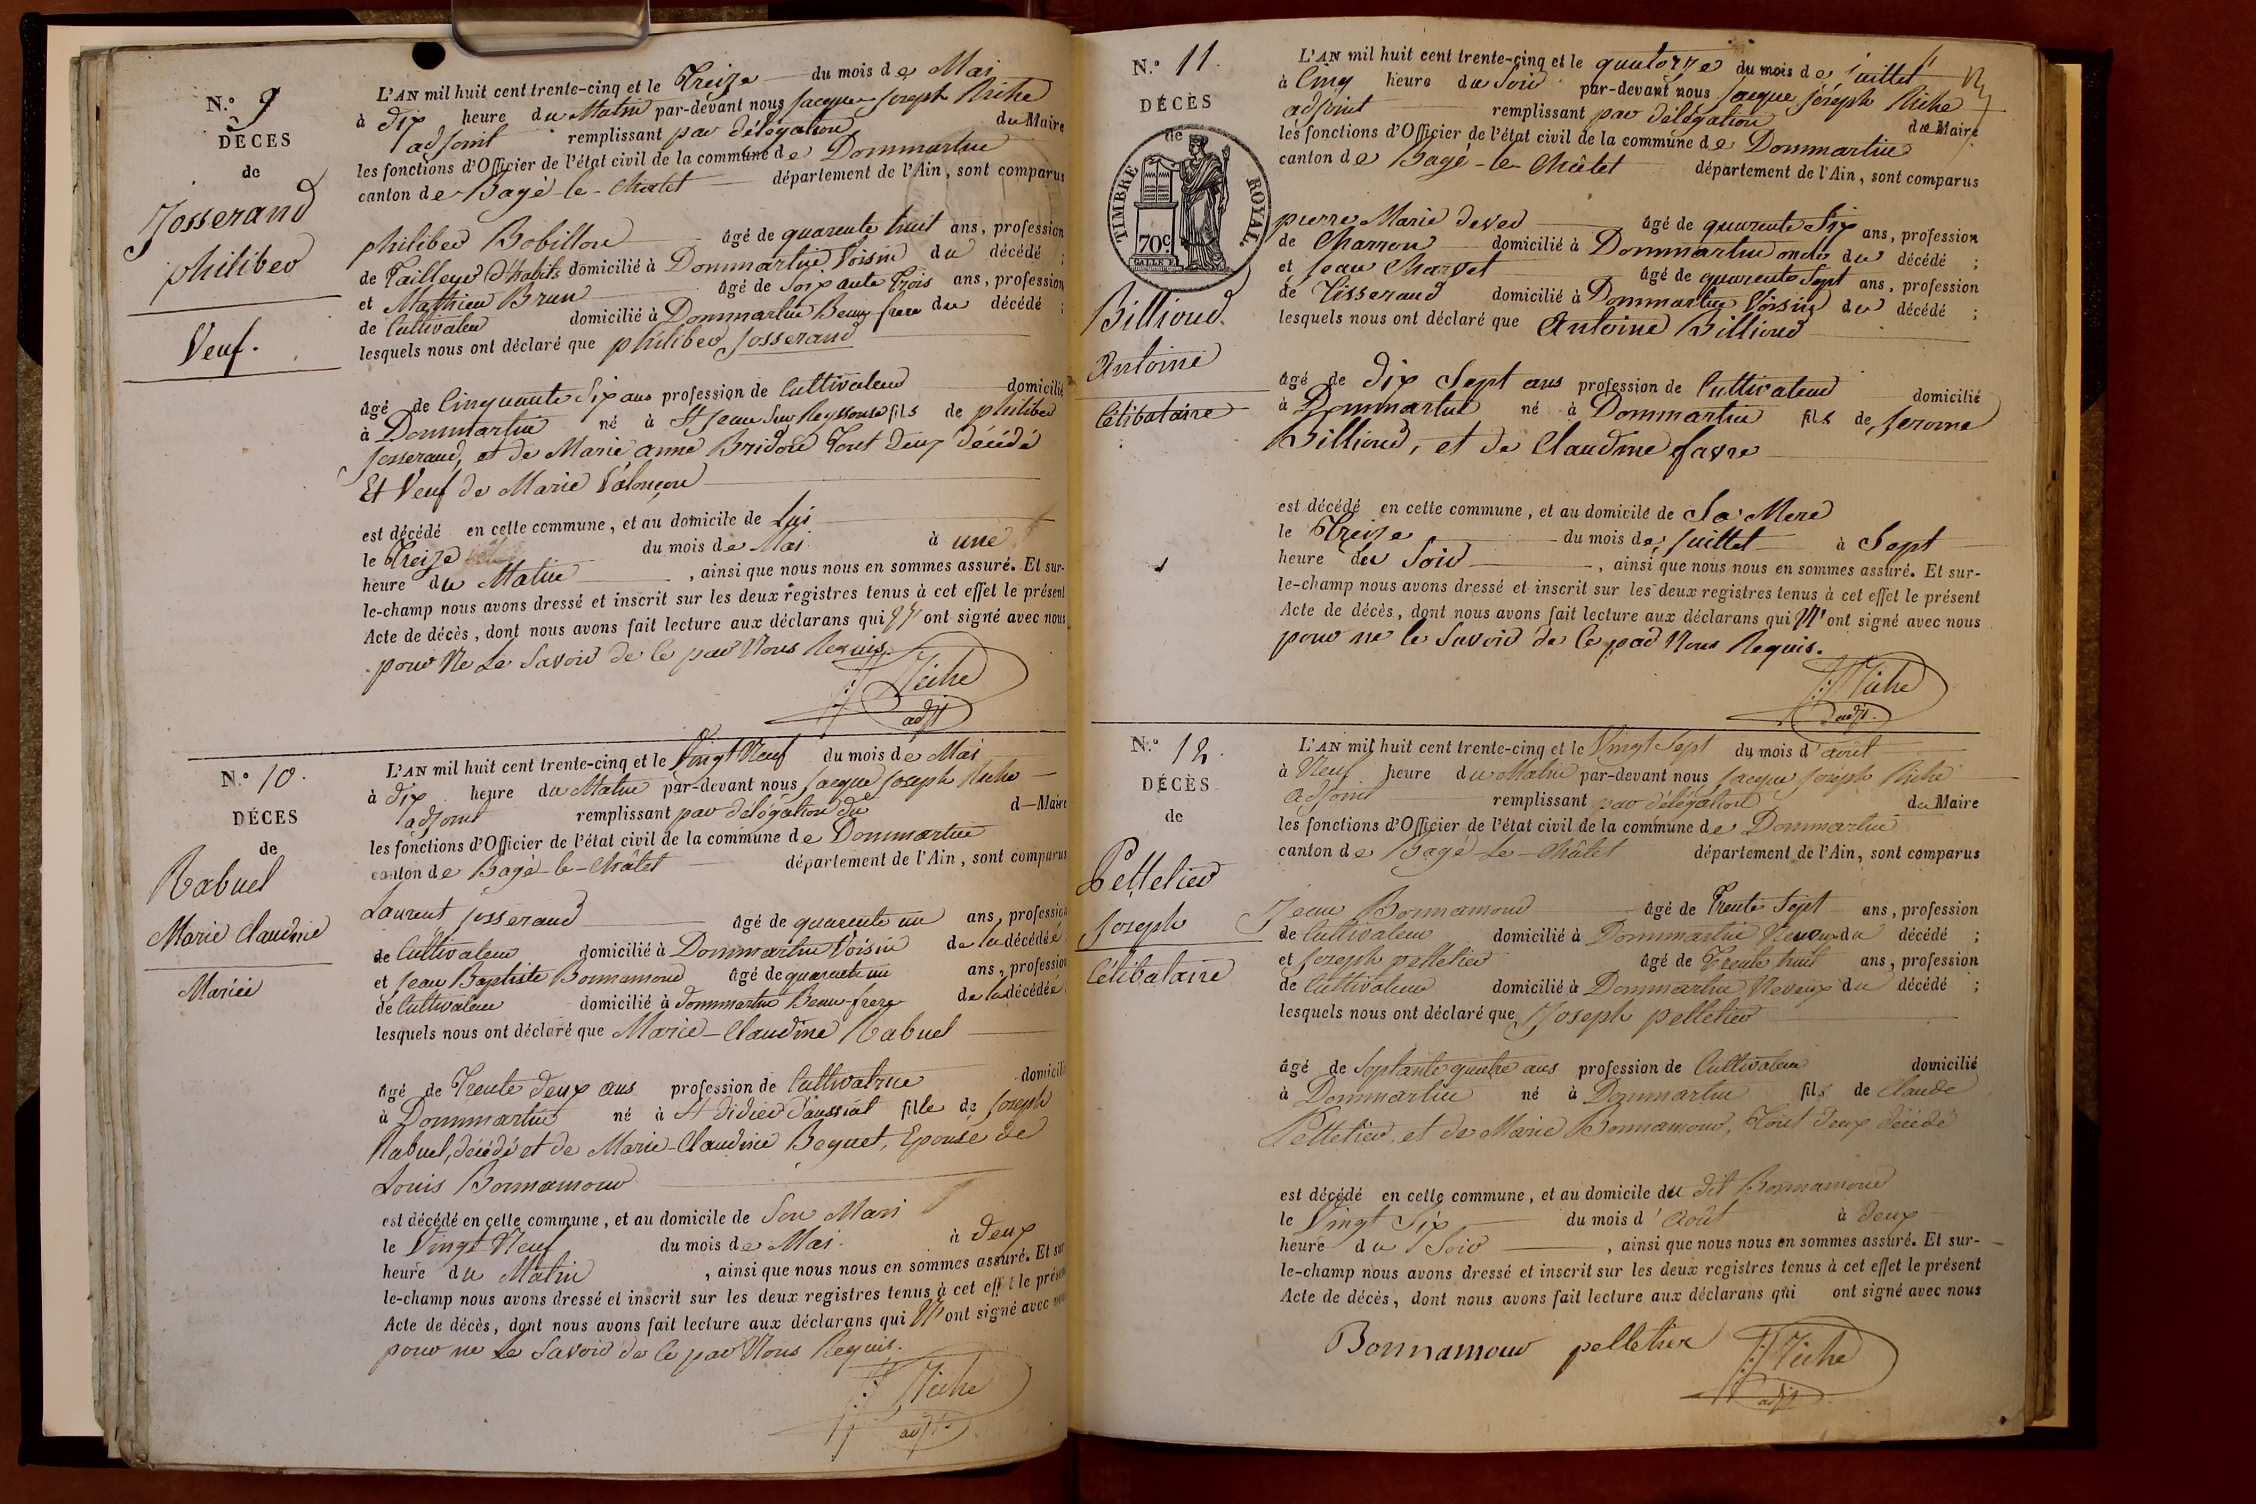 N.° 9
DÉCES
de
Josserand
philiber
Veuf.
L'AN mil huit cent trente-cinq et le Treize du mois de Mai
à dix heure du Matin par-devant nous Jacque Joseph Riche
adjoint remplissant par délégation du Maire
les fonctions d'Officier de l'état civil de la commune de Dommartin
canton de Bagé-le-Chatel département de l'Ain, sont comparus
philiber Bobillon âgé de quarente huit ans, profession
de Tailleur d'habits domicilié à Dommartin Voisin du décédé ;
et Mathieu Brun âgé de Soixante Trois ans, profession
de Cultivateur domicilié à Dommartin Beau-frere du décédé ;
lesquels nous ont déclaré que philiber Josserand
âgé de Cinquante Six ans profession de Cultivateur domicilié
à Dommartin né à St Jean Sur Reyssouse fils de philiber
Josserand, et de Marie anne Bridon Tout deux décédé
Et Veuf de Marie Valonçon
est décédé en celle commune, et au domicile de Lui
le Treize du mois de Mai à une
heure du Matin, ainsi que nous nous en sommes assuré. Et sur-
le-champ nous avons dressé et inscrit sur les deux registres tenus à cet effet le présent
Acte de décès, dont nous avons fait lecture aux déclarans qui N' ont signé avec nous
pour Ne Le Savoir de Ce par Nous Requis.
JJ Riche
adjt
N.° 10.
DÉCES
de
Rabuel
Marie Claudine
Mariée
L'AN mil huit cent trente-cinq et le Vingt Neuf du mois de Mai
à dix heure du Matin par-devant nous Jacque Joseph Riche
adjoint remplissant par délégation du d Maire
les fonctions d'Officier de l'état civil de la commune de Dommartin
canton de Bagé-le-Châtel département de l'Ain, sont comparus
Laurent Josserand âgé de quarente un ans, profession
de Cultivateur domicilié à Dommartin Voisin de la décédée
et Jean Baptiste Bonnamour âgé de quarente un ans, profession
de Cultivateur domicilié à dommartin Beau-frere de la décédée
lesquels nous ont déclaré que Marie-Claudine Rabuel
âgé de Trente deux ans profession de Cultivatrice domicilié
à Dommartin né à St didier d'aussiat fille de Joseph
Rabuel, décédé et de Marie-Claudine Beguet, Epouse de
Louis Bonnamour
est décédé en celle commune, et au domicile de Son Mari
le Vingt Neuf du mois de Mai. à deux
heure du Matin, ainsi que nous nous en sommes assuré. Et sur
le-champ nous avons dressé et inscrit sur les deux registres tenus à cet effet le présen
Acte de décès, dont nous avons fait lecture aux déclarans qui N' ont signé avec nou
pour ne Le Savoir de Ce par Nous Requis.
JJ Riche
adjt.
N.° 11.
DÉCÈS
de
TIMBRE ROYAL
70c
Billioud.
Antoine
Célibataire
L'AN mil huit cent trente-cinq et le quatorze du mois de Juillet
à Cinq heure du Soir par-devant nous Jacque Joseph Riche
adjoint remplissant par délégation du Maire
les fonctions d'Officier de l'état civil de la commune de Dommartin
canton de Bagé-le-Châtel département de l'Ain, sont comparus
pierre Marie deved âgé de quarente Six ans, profession
de Charron domicilié à Dommartin oncle du décédé ;
et Jean Charvet âgé de quarente Sept ans, profession
de Tisserand domicilié à Dommartin Voisin du décédé ;
lesquels nous ont déclaré que Antoine Billioud
âgé de dix Sept ans profession de Cultivateur domicilié
à Dommartin né à Dommartin fils de Jerome
Billioud, et de Claudine favre
est décédé en celle commune, et au domicile de Sa Mere
le Treize du mois de Juillet à Sept
heure du Soir, ainsi que nous nous en sommes assuré. Et sur-
le-champ nous avons dressé et inscrit sur les deux registres tenus à cet effet le présent
Acte de décès, dont nous avons fait lecture aux déclarans qui N' ont signé avec nous
pour ne le Savoir de Ce par Nous Requis.
JJ Riche
adjt.
N.° 12.
DÉCÈS
de
Pelletier
Joseph
Célibataire
L'AN mil huit cent trente-cinq et le Vingt Sept du mois d'août
à Neuf heure du Matin par-devant nous Jacque Joseph Riche
adjoint remplissant par délégation du Maire
les fonctions d'Officier de l'état civil de la commune de Dommartin
canton de Bagé-Le-Châtel département de l'Ain, sont comparus
Jean Bonnamour âgé de Trente Sept ans, profession
de Cultivateur domicilié à Dommartin Neveu du décédé ;
et Joseph pelletier âgé de Trente huit ans, profession
de Cultivateur domicilié à Dommartin Neveux du décédé ;
lesquels nous ont déclaré que Joseph pelletier
âgé de Septante quatre ans profession de Cultivateur domicilié
à Dommartin né à Dommartin fils de Claude
Pelletier, et de Marie Bonnamour, Tout deux décédé
est décédé en celle commune, et au domicile du dit Bonnamour
le Vingt Six du mois d'Août à deux
heure du Soir, ainsi que nous nous en sommes assuré. Et sur-
le-champ nous avons dressé et inscrit sur les deux registres tenus à cet effet le présent
Acte de décès, dont nous avons fait lecture aux déclarans qui ont signé avec nous
Bonnamour pelletier JJ Riche
adjt